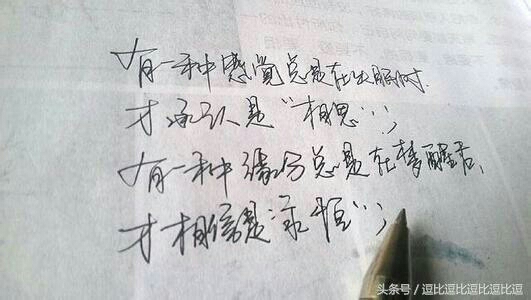 有一种感觉总是在失眠时.
才承认是“相思”;
有一种缘分总是在梦醒后、
才相信是“永恒”;
头条号 / 逗比逗比逗比逗比逗